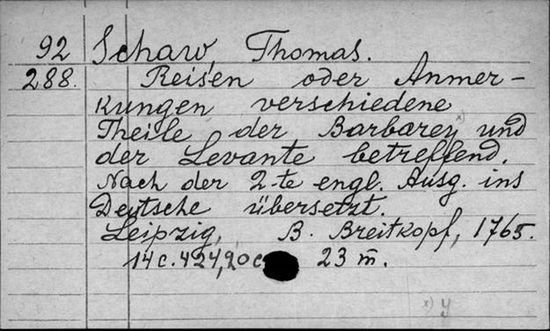 92 Schaw, Thomas.
288. Reisen oder Anmer-
kungen verschiedene
Theile der Barbarey x) und
der Levante betreffend.
Nach der 2-te engl. Ausg. ins
Deutsche übersetzt.
Leipzig, B. Breitkopf, 1765.
14 c. 424, 20 c 23 m.
x) y